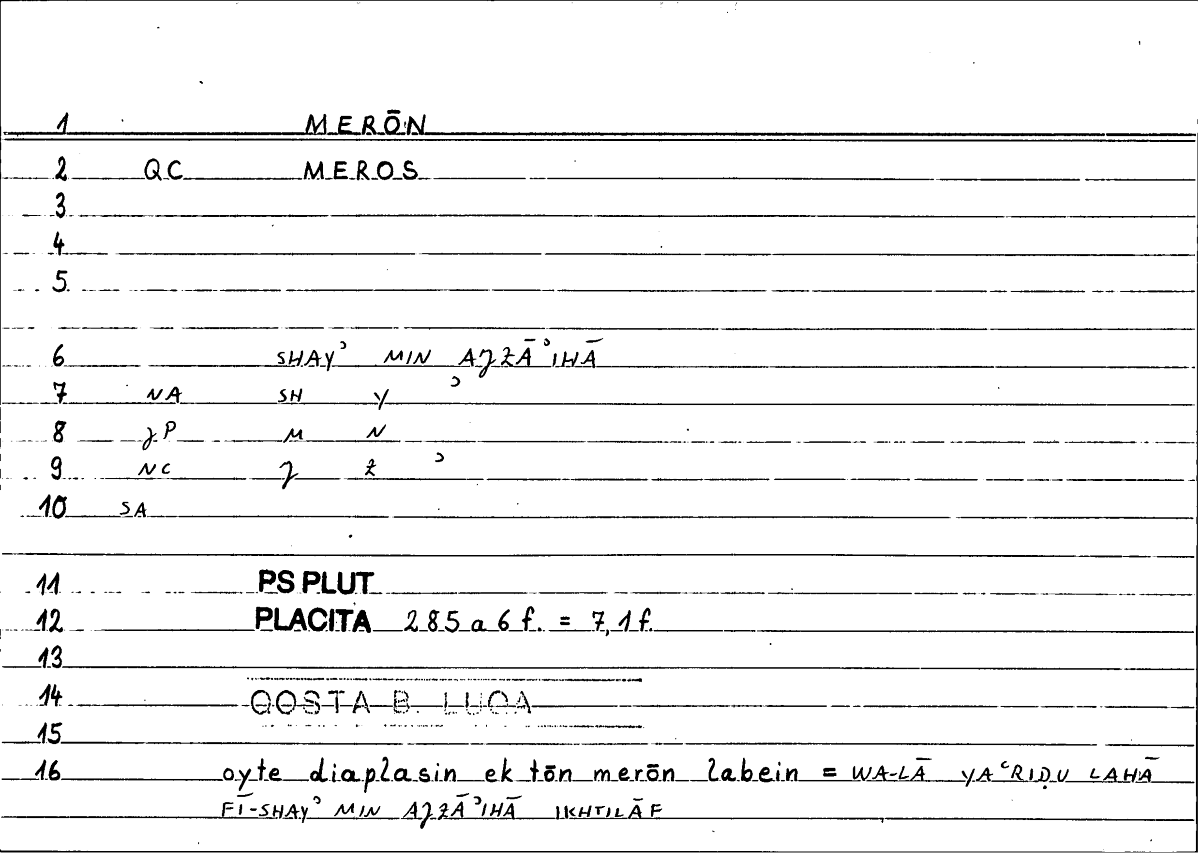 1 MERŌN
2 QC MEROS
3
4
5
6 SHAYʾ MIN AJZĀʾIHĀ
7 NA SH Y ʾ
8 JP M N
9 NC J Z ʾ
10 SA
11 PS PLUT
12 PLACITA 285 a 6 f. = 7,1 f.
13
14 QOSTA B. LUQA
15
16 oyte diaplasin ek tōn merōn labein = WA-LĀ YAʿRIḌU LAHĀ
FĪ-SHAYʾ MIN AJZĀʾIHĀ IKHTILĀF